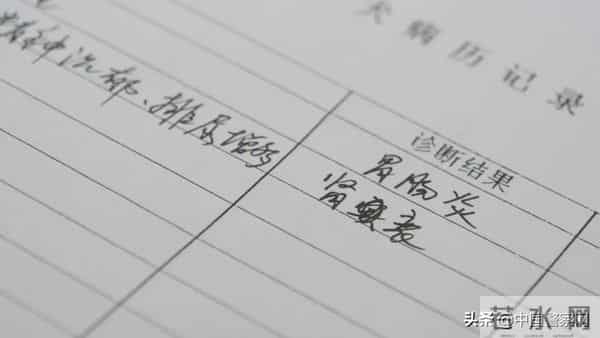 犬病历记录
精神沉郁、排尿增多
诊断结果
胃肠炎
肾衰
若水网
头条@中国